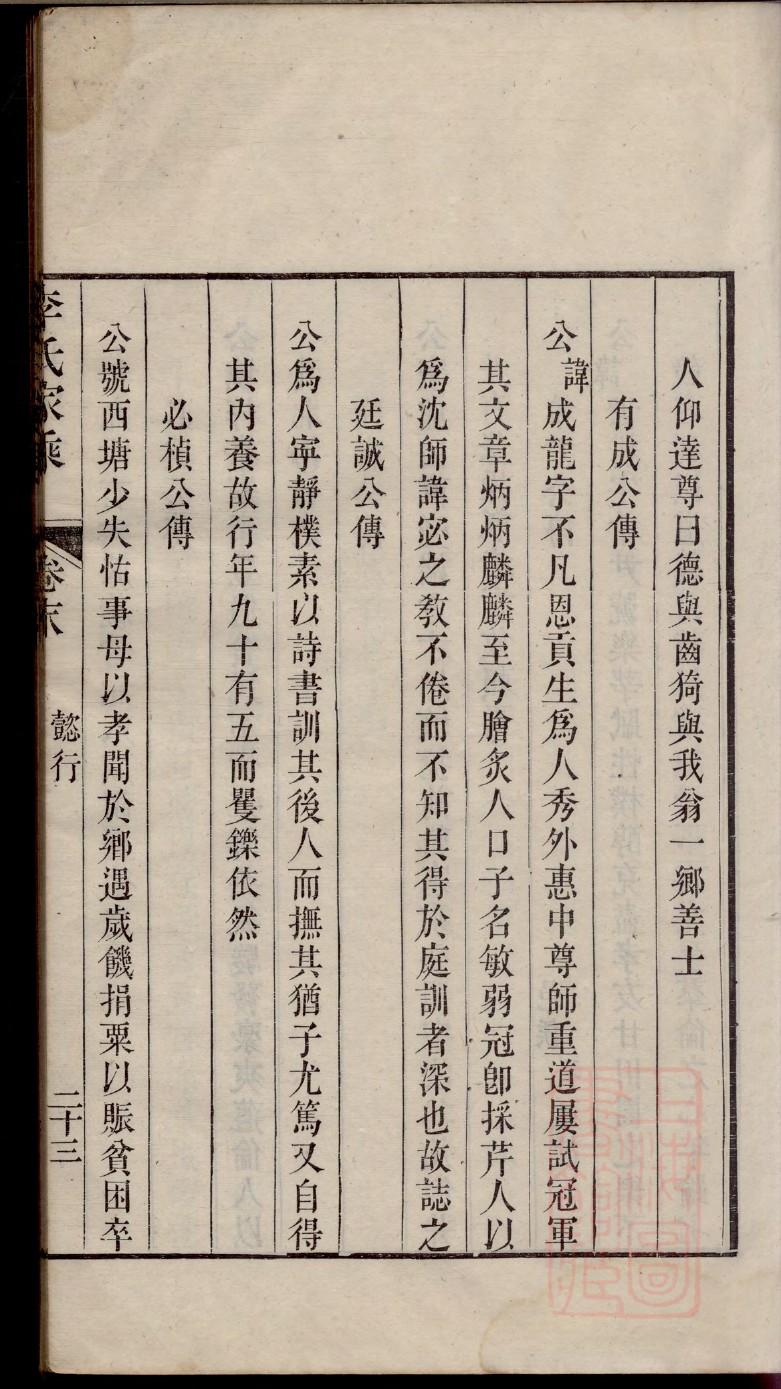 人仰達尊曰德與齒猗與我翁一鄉善士
有成公傳
公諱成龍字不凡恩貢生爲人秀外惠中尊師重道屢試冠軍
其文章炳炳麟麟至今膾炙人口子名敏弱冠卽採芹人以
爲沈師諱宓之教不倦而不知其得於庭訓者深也故誌之
廷誠公傳
公爲人寧靜樸素以詩書訓其後人而撫其猶子尤篤又自得
其內養故行年九十有五而矍鑠依然
必楨公傳
公號西塘少失怙事母以孝聞於鄉遇歲饑捐粟以賑貧困卒
李氏家乘 卷末 懿行 二十三